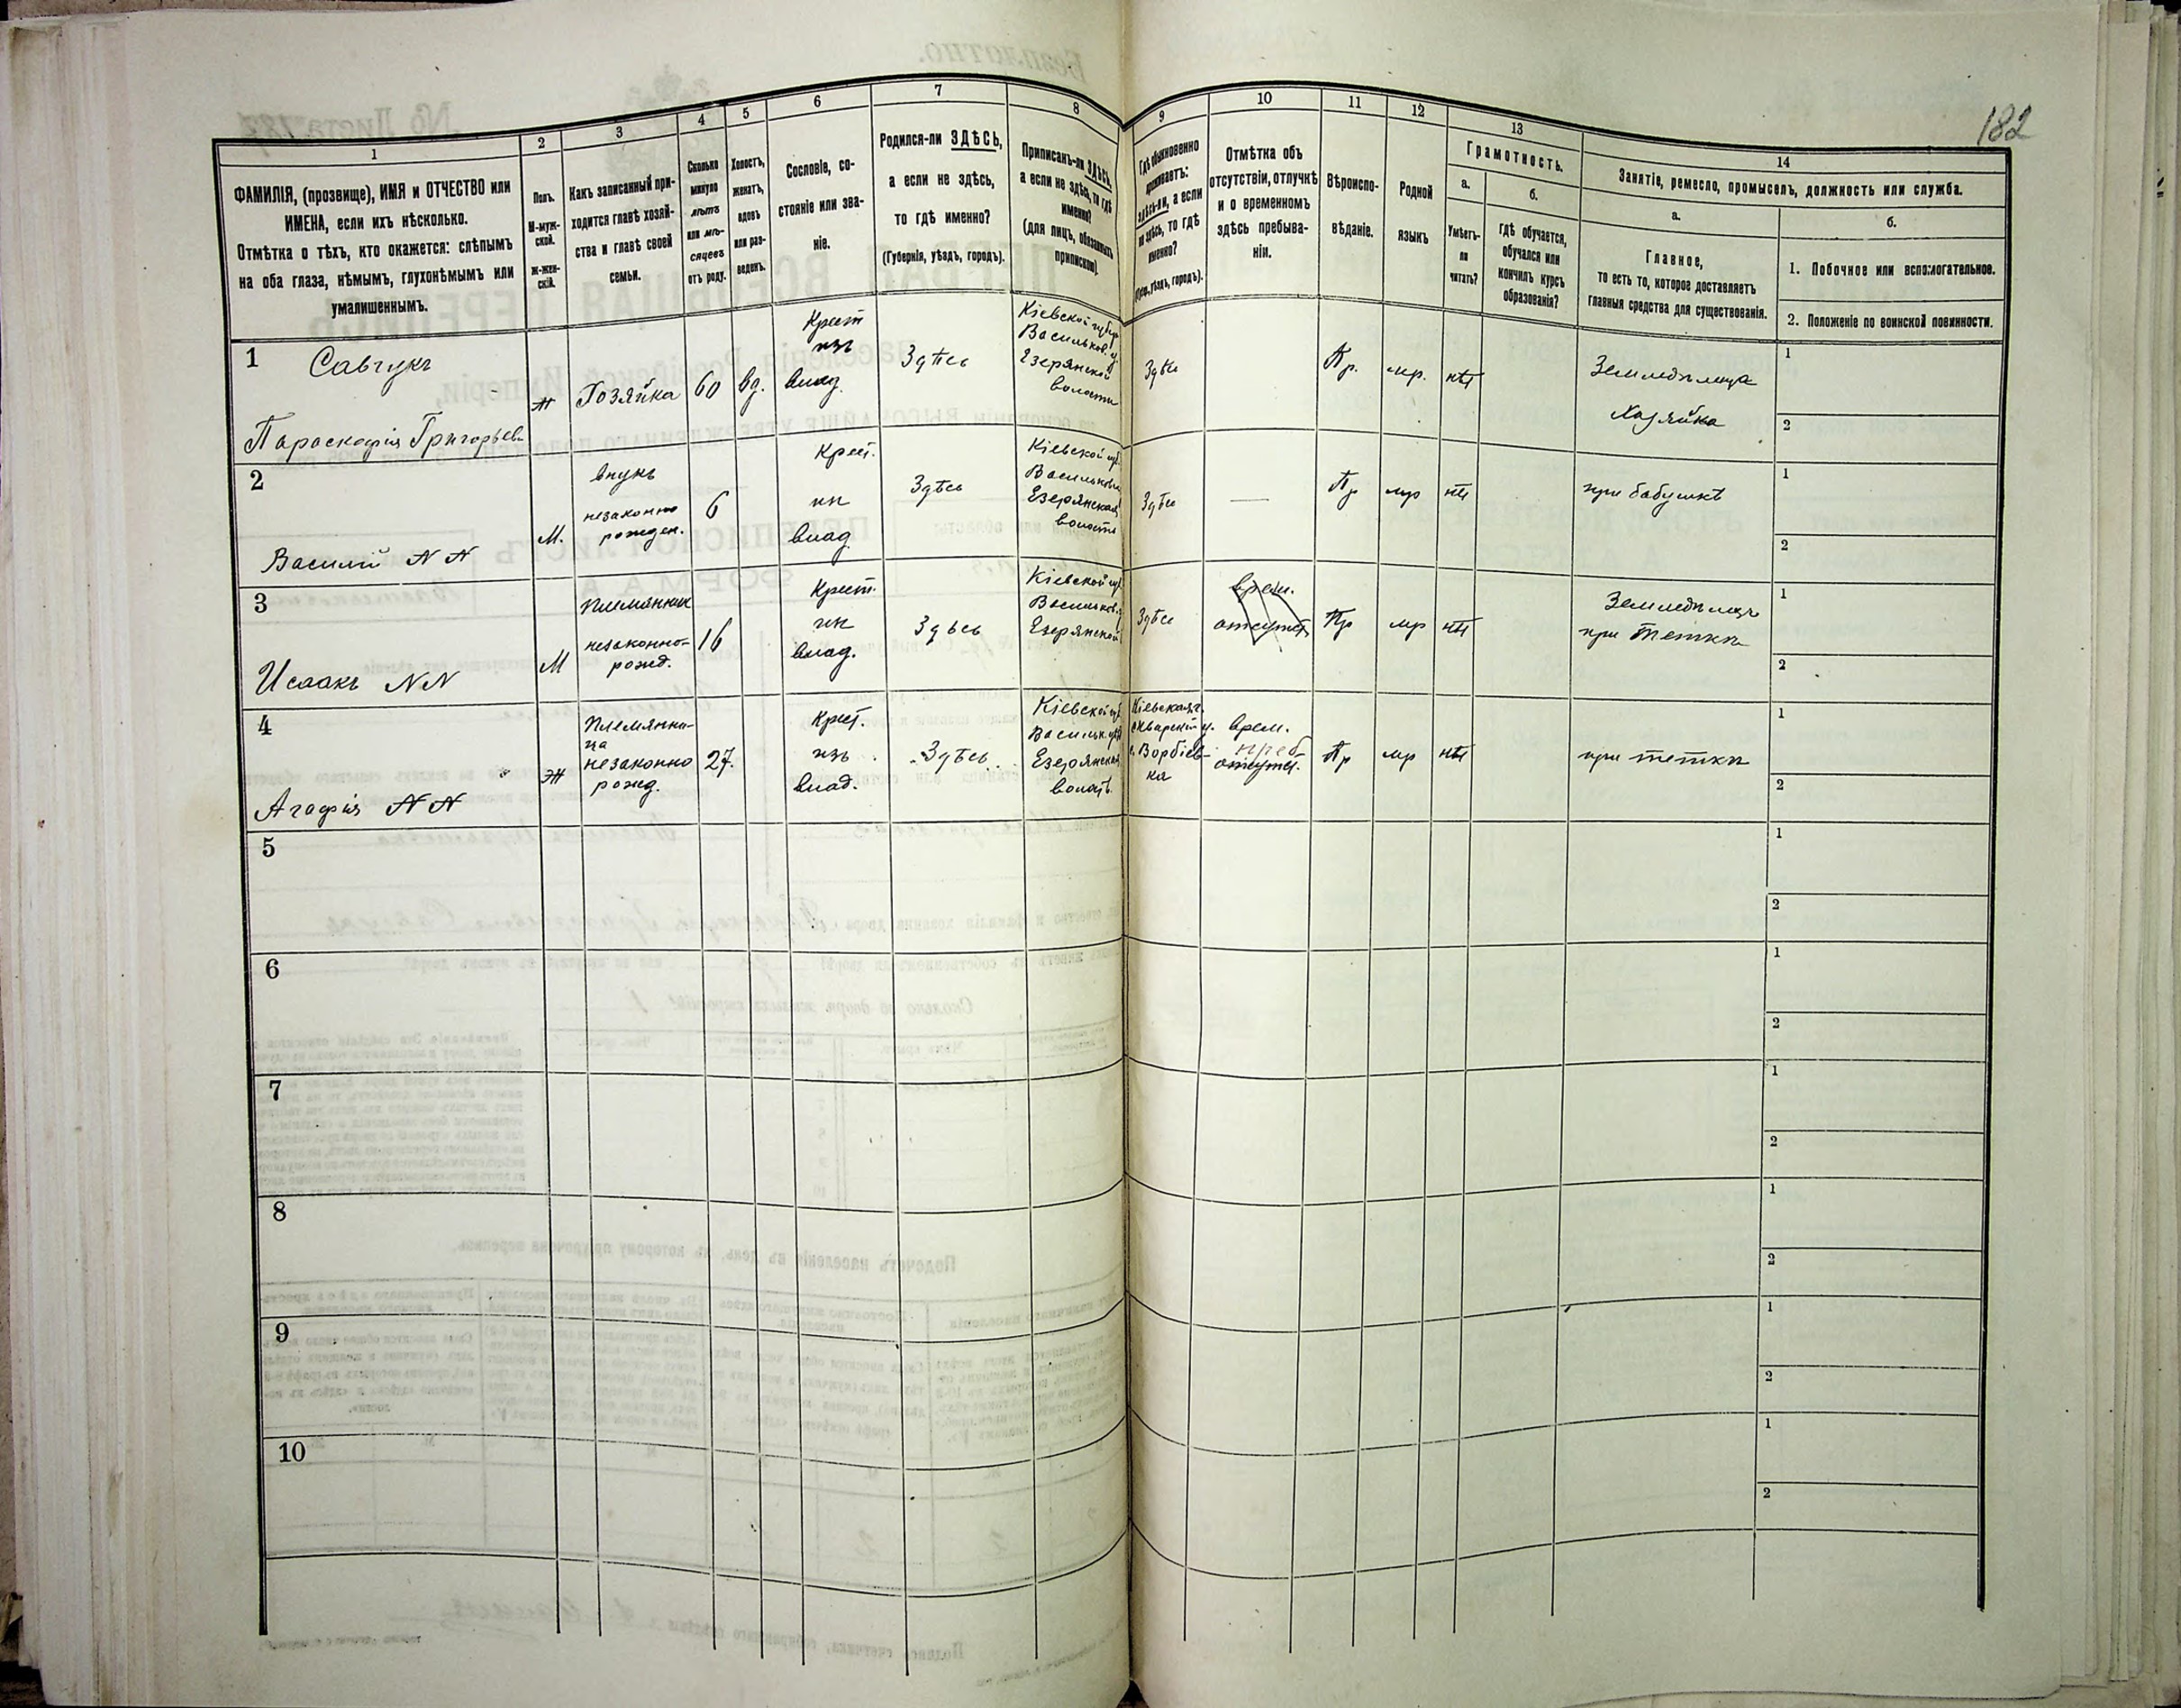 182
1
2
3
4
5
6
7
8
9
10
11
12
13
14
ФАМИЛІЯ, (прозвище), ИМЯ и ОТЧЕСТВО или
ИМЕНА, если ихъ нѣсколько.
Отмѣтка о тѣхъ, кто окажется: слѣпымъ
на оба глаза, нѣмымъ, глухонѣмымъ или
умалишеннымъ.
Полъ.
М-муж-
ской.
Ж-жен-
скій.
Какъ записанный при-
ходится главѣ хозяй-
ства и главѣ своей
семьи.
Сколько
минуло
лѣтъ
или мѣ-
сяцевъ
отъ роду.
Холостъ,
женатъ,
вдовъ
или раз-
веденъ.
Сословіе, со-
стояніе или зва-
ніе.
Родился-ли ЗДѢСЬ,
а если не здѣсь,
то гдѣ именно?
(Губернія, уѣздъ, городъ).
Приписанъ-ли ЗДѢСЬ,
а если не здѣсь, то гдѣ
именно?
(для лицъ, обязанныхъ
припискою).
Гдѣ обыкновенно
проживаетъ:
здѣсь-ли, а если
не здѣсь, то гдѣ
именно?
(Губ., уѣздъ, городъ).
Отмѣтка объ
отсутствіи, отлучкѣ
и о временномъ
здѣсь пребыва-
ніи.
Вѣроиспо-
вѣданіе.
Родной
языкъ
Грамотность.
а.
Умѣетъ-
ли
читать?
б.
гдѣ обучается,
обучался или
кончилъ курсъ
образованія?
Занятіе, ремесло, промыселъ, должность или служба.
а.
Главное,
то есть то, которое доставляетъ
главныя средства для существованія.
б.
1. Побочное или вспомогательное.
2. Положеніе по воинской повинности.
1
Савчукъ
Параскофія Григорьев.
Ж
Хозяйка
60
вд.
Крест
изъ
влад.
Здѣсь
Кіевской губер
Васильков. у.
Езерянской
волости
Здѣсь
Пр.
мр.
нѣт
Земледѣлица
Хазяйка
1
2
2
Василій NN
М.
внукъ
незаконно
рожден.
6
Крест.
из
влад
Здѣсь
Кіевской губ.
Васильков
Езерянская
волость
Здѣсь
—
Пр
мр
нѣт
при бабушкѣ
1
2
3
Исаакъ NN
М
племянник
незаконно-
рожд.
16
Крест.
из
влад.
Здѣсь
Кіевской губ
Васильков.
Езерянской
Здѣсь
врем.
отсутст.
Пр
мр
нѣт
Земледѣлецъ
при теткѣ
1
2
4
Агафія NN
Ж
племянни-
ца
незаконно
рожд.
27.
Крест.
изъ
влад.
Здѣсь
Кіевской губ
Васильк. уѣз
Езерянская
волость
Кіевская г.
Сквирскій у.
с. Ворбіев-
ка
врем.
преб
отсутст.
Пр
мр
нѣт
при теткѣ
1
2
5
1
2
6
1
2
7
1
2
8
1
2
9
1
2
10
1
2